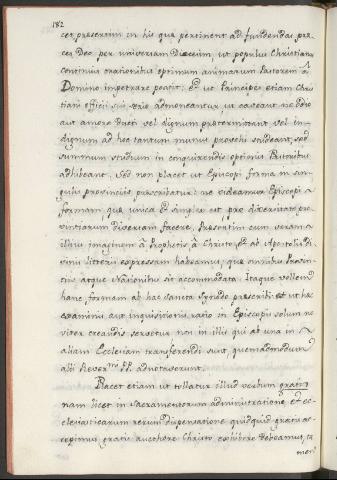 182
cet præsertim in his quæ pertinent ad fundendas pre-
ces Deo per universam Diæcesim, ut populus Christianus
continuis orationibus optimum animarum Pastorem à
Domino impetrare possit; et ut Principes etiam Chris
tiani officii sui serio admoneantur, ut caveant ne odio
aut amore ducti vel dignum prætermittant, vel in-
dignum ad hoc tantum munus provehi studeant, sed
summum studium in conquirendis optimis Pastoribus
adhibeant. Sed non placet ut Episcopi forma in sin-
gulis provinciis præscribatur: ne videamur Episcopi
formam quæ unica et simplex est pro diversitate pro-
vintiarum diversam facere, præsertim cum veram
illius imaginem à Prophetis à Christo, et ab Apostolis di-
vinis litteris expressam habeamus, quæ omnibus Provin-
ciis atque Nationibus sit accommodata. Itaque vellem
hanc formam ab hac sancta Synodo præscribi: et ut hæc
examinis aut inquisitionis ratio in Episcopis solum no
viter creandis servetur non in illis qui ab una in
aliam Ecclesiam transferendi sunt, quemadmodum
alii Rever.mi PP. adnotaverunt.
Placet etiam ut tollatur illud verbum gratis
nam licet in sacramentorum administratione, et ec-
clesiasticarum rerum dispensatione quidquid gratis ac-
cepimus gratis aucthore Christo exhibere debeamus, ta
men